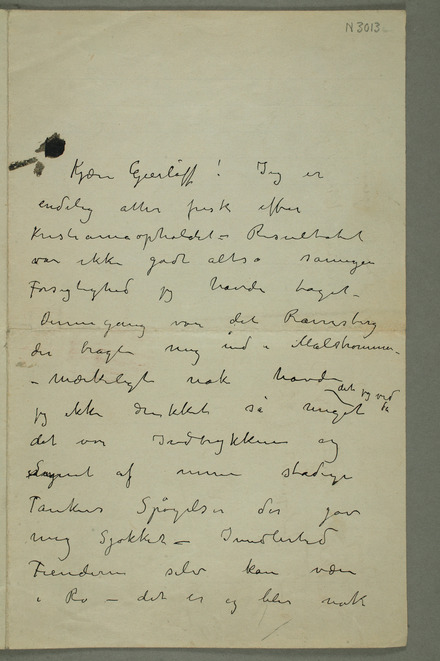 N 3013
Kjære Gierløff! Jeg er
endelig atter frisk efter
Kristianiaopholdet – Resultatet
var ikke godt altså
Forsigtighed jeg havde taget –
Dennegang var det Ravnsberg
der bragte mig ud i Malstrømmen
– mærkeligt nok havde
det jeg ved
jeg ikke drukket så meget
det var Indtrykkene og
Synet af mine stadige
Tankers Spøgelser der gav
mig Sjokket – Imidlertid
Fienderne selv kan være
i Ro – det er og blir nok